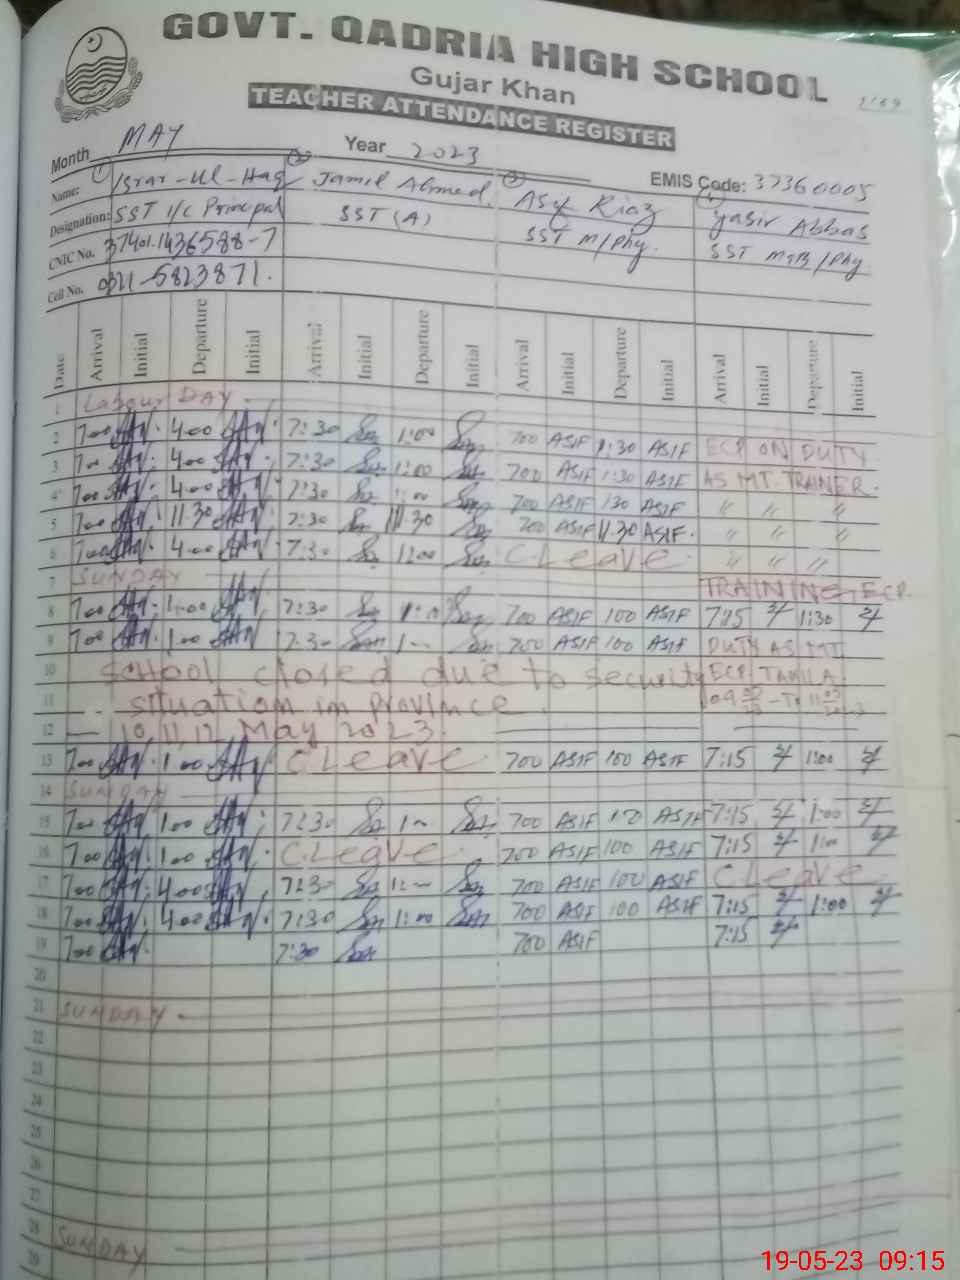 GOVT. QADRIA HIGH SCHOOL
Gujar Khan
TEACHER ATTENDANCE REGISTER
Month MAY Year 2023 EMIS Code: 37360005
Name: 1 Israr-ul-Haq 2 Jamil Ahmed 3 Asif Riaz 4 Yasir Abbas
Designation: SST I/C Principal SST (A) SST M/Phy. SST Math/Phy
CNIC No. 37401-1436588-7
Cell No. 0321-5823871.
Date Arrival Initial Departure Initial Arrival Initial Departure Initial Arrival Initial Departure Initial Arrival Initial Departure Initial
1 Labour DAY
2 7:00 4:00 7:30 1:00 700 ASIF 1:30 ASIF ECP ON DUTY
3 7:00 4:00 7:30 1:00 700 ASIF 1:30 ASIF AS MT TRAINER.
4 7:00 4:00 7:30 1:00 700 ASIF 130 ASIF " " "
5 7:00 11:30 7:30 11:30 700 ASIF 11.30 ASIF " " "
6 7:00 4:00 7:30 1:00 C Leave " " "
7 SUNDAY TRAINING ECP
8 7:00 1:00 7:30 1:00 700 ASIF 100 ASIF 7:15 1:30
9 7:00 1:00 7:30 1 700 ASIF 100 ASIF DUTY AS MT
10 School closed due to security ECP TAXILA
11 situation in province
12 10, 11, 12 May 2023
13 7:00 1:00 C Leave 700 ASIF 100 ASIF 7:15 1:00
14 SUNDAY
15 7:00 1:00 7:30 1 700 ASIF 100 ASIF 7:15 1:00
16 7:00 1:00 C. Leave 700 ASIF 100 ASIF 7:15 1:00
17 7:00 4:00 7:30 700 ASIF 100 ASIF C Leave
18 7:00 4:00 7:30 1:00 700 ASIF 100 ASIF 7:15 1:00
19 7:00 7:30 700 ASIF 7:15
20
21 SUNDAY
22
23
24
25
26
27
28 SUNDAY
29
19-05-23 09:15